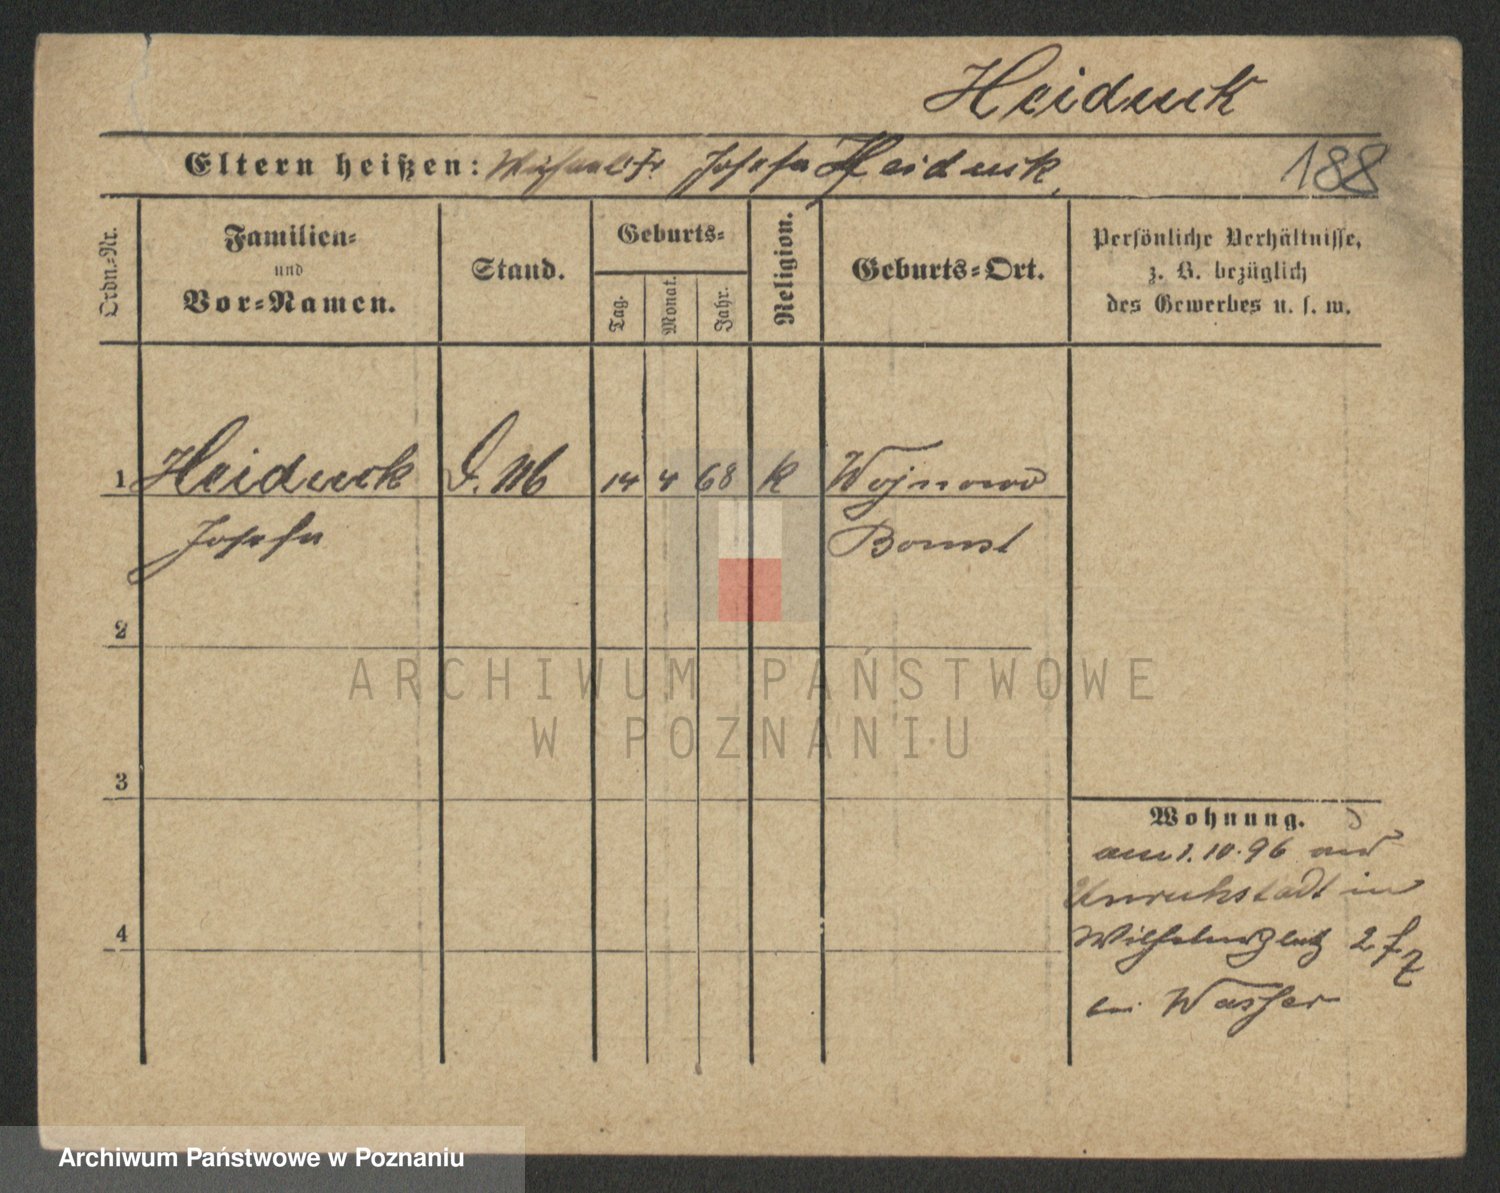 Heiduck
Eltern heißen: Josefa Heiduck 188
Ordn.-Nr.
Familien-
und
Vor-Namen.
Stand.
Geburts-
Tag.
Monat.
Jahr.
Religion.
Geburts-Ort.
Persönliche Verhältnisse,
z. B. bezüglich
des Gewerbes u. s. w.
1 Heiduck D. M 14 4 68 k Wojnowo
Josefa Bomst
2
3
4
Wohnung.
am 1.10.96 aus
Unruhstadt in
Wilhelmsplatz 2
bei Wasser
ARCHIWUM PAŃSTWOWE
W POZNANIU
Archiwum Państwowe w Poznaniu